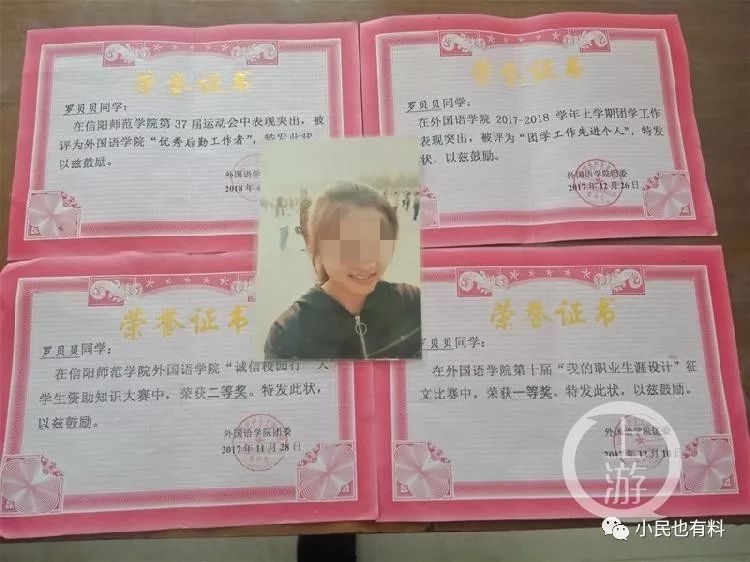 荣誉证书
罗贝贝同学：
在信阳师范学院第37届运动会中表现突出，被
评为外国语学院“优秀后勤工作者”，特发此状
以兹鼓励。
外国语学院
2018年4
荣誉证书
罗贝贝同学：
在外国语学院2017-2018学年上学期团学工作
表现突出，被评为“团学工作先进个人”，特发
状，以兹鼓励。
外国语学院团委
2017年12月26日
荣誉证书
罗贝贝同学：
在信阳师范学院外国语学院“诚信校园行”大
学生资助知识大赛中，荣获二等奖。特发此状，
以兹鼓励。
外国语学院团委
2017年11月28日
荣誉证书
罗贝贝同学：
在外国语学院第十届“我的职业生涯设计”征
文比赛中，荣获一等奖。特发此状，以兹鼓励。
外国语学院团委
2017年12月10日
上游
小民也有料